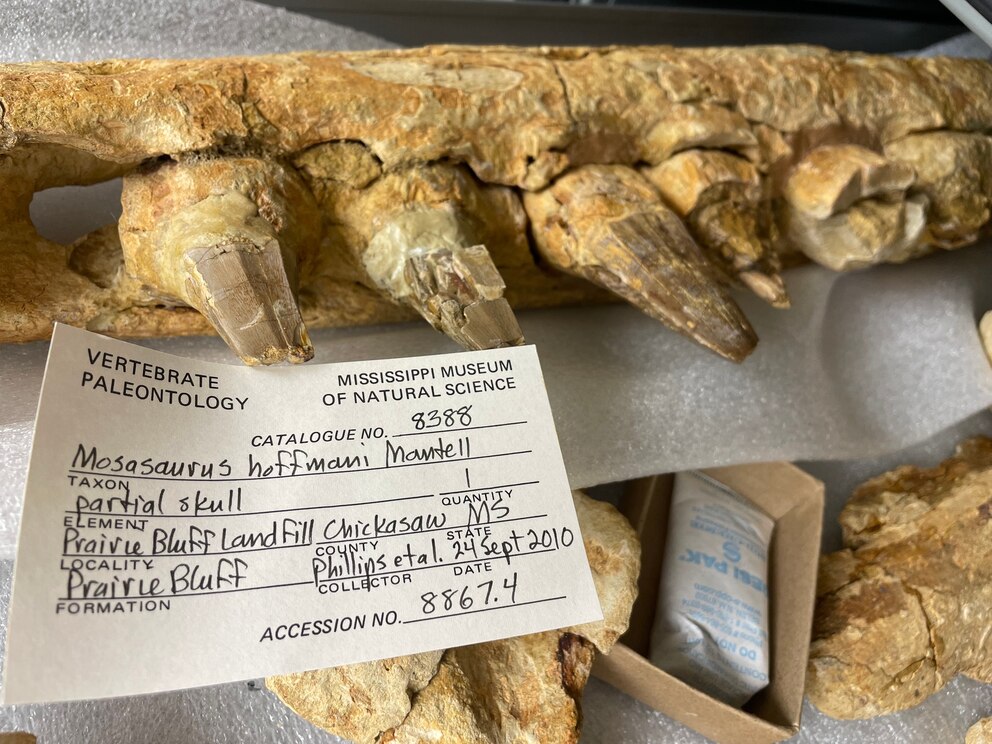 VERTEBRATE PALEONTOLOGY
MISSISSIPPI MUSEUM OF NATURAL SCIENCE
CATALOGUE NO. 8388
Mosasaurus hoffmani Mantell
TAXON
partial skull 1
ELEMENT QUANTITY
Prairie Bluff Landfill Chickasaw MS
LOCALITY COUNTY STATE
Prairie Bluff Phillips et al. 24 Sept 2010
FORMATION COLLECTOR DATE
ACCESSION NO. 8867.4
DESI PAK
DO NO